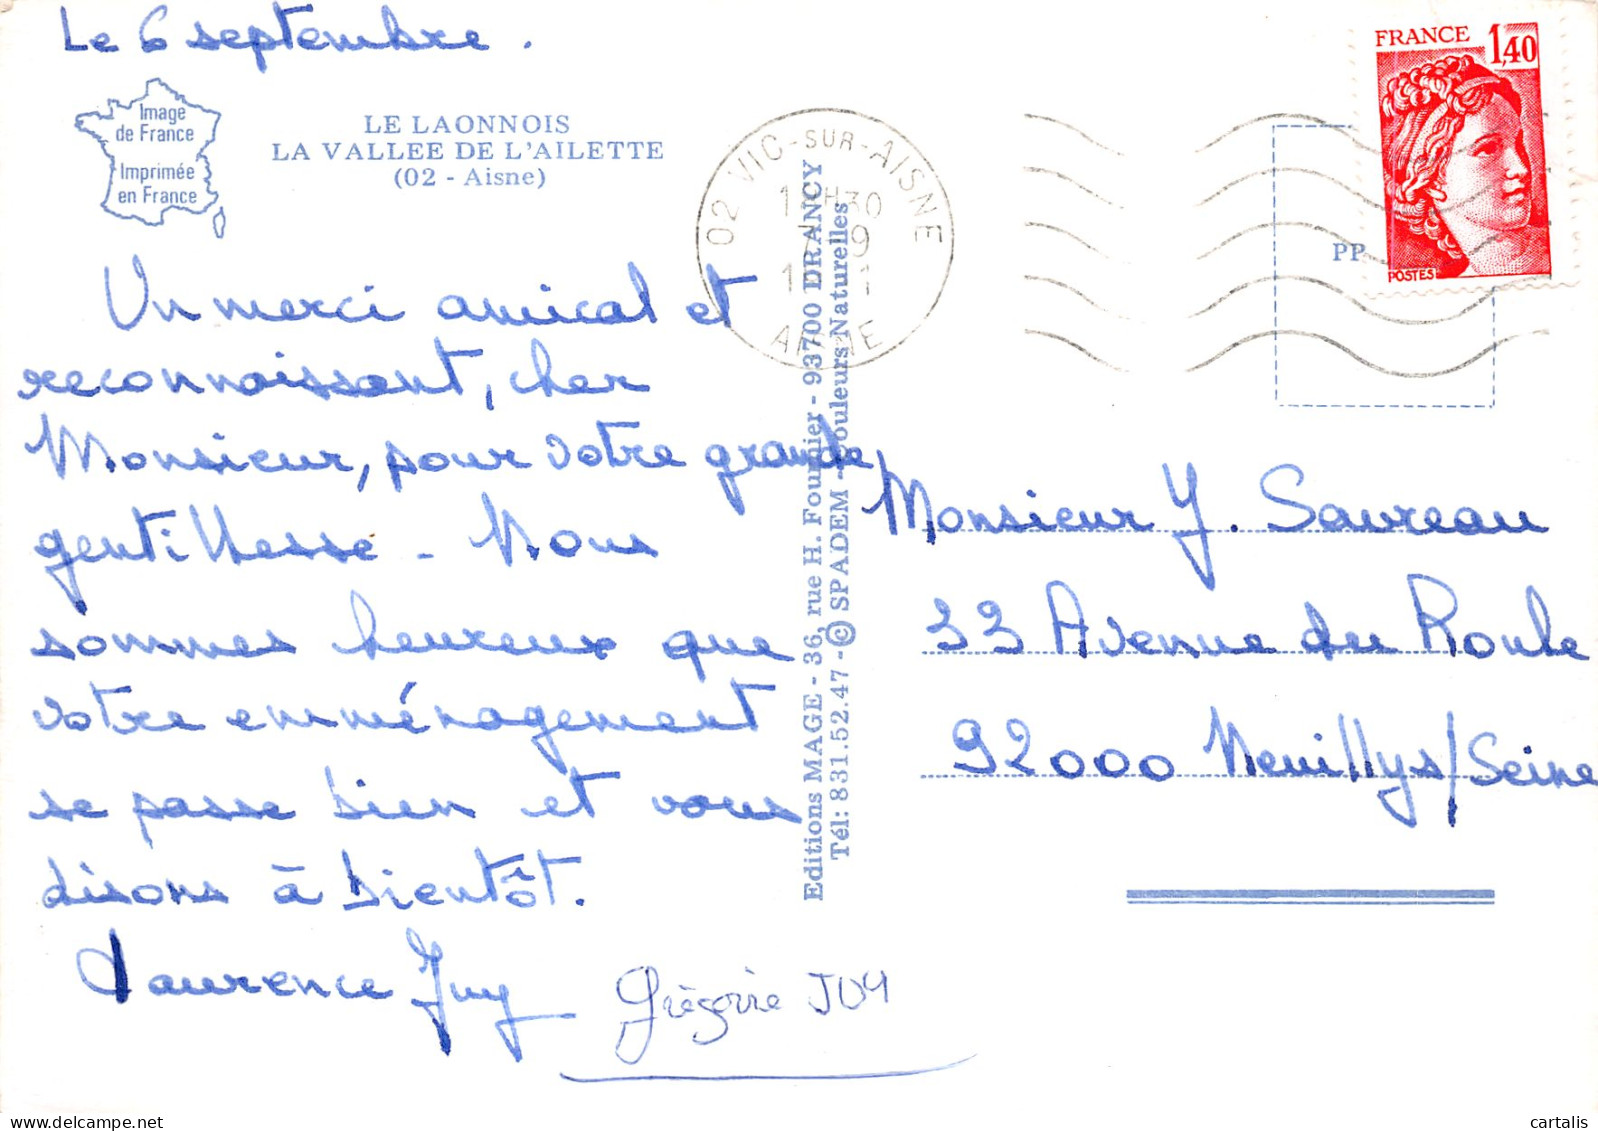 Le 6 septembre.
Image
de France
Imprimée
en France
LE LAONNOIS
LA VALLEE DE L'AILETTE
(02 - Aisne)
02 VIC-SUR-AISNE
AISNE
FRANCE 1,40
POSTES
PP
Un merci amical et
reconnaissant, cher
Monsieur, pour votre grande
gentillesse - Nous
sommes heureux que
votre emménagement
se passe bien et vous
disons à bientôt.
Laurence Juy
Grégoire JUY
Editions MAGE - 36, rue H. Fournier - 93700 DRANCY
Tél: 831.52.47 - © SPADEM - Couleurs Naturelles
Monsieur Y. Saureau
33 Avenue du Roule
92000 Neuillys/Seine
cartalis